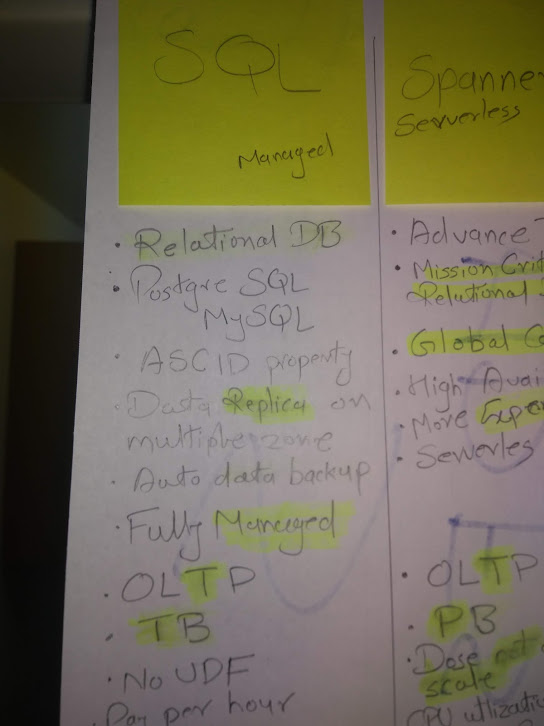 SQL
Managed
· Relational DB
· Postgre SQL
MySQL
· ASCID property
· Data Replica on
multiple zone
· Auto data backup
· Fully Managed
· OLTP
· TB
· No UDF
Pay per hour
Spanne
Serverless
· Advance
· Mission Crit
Relational
· Global
· High Avai
· More Expe
· Serverles
· OLTP
· PB
· Dose not
scale
CPU utlizatio